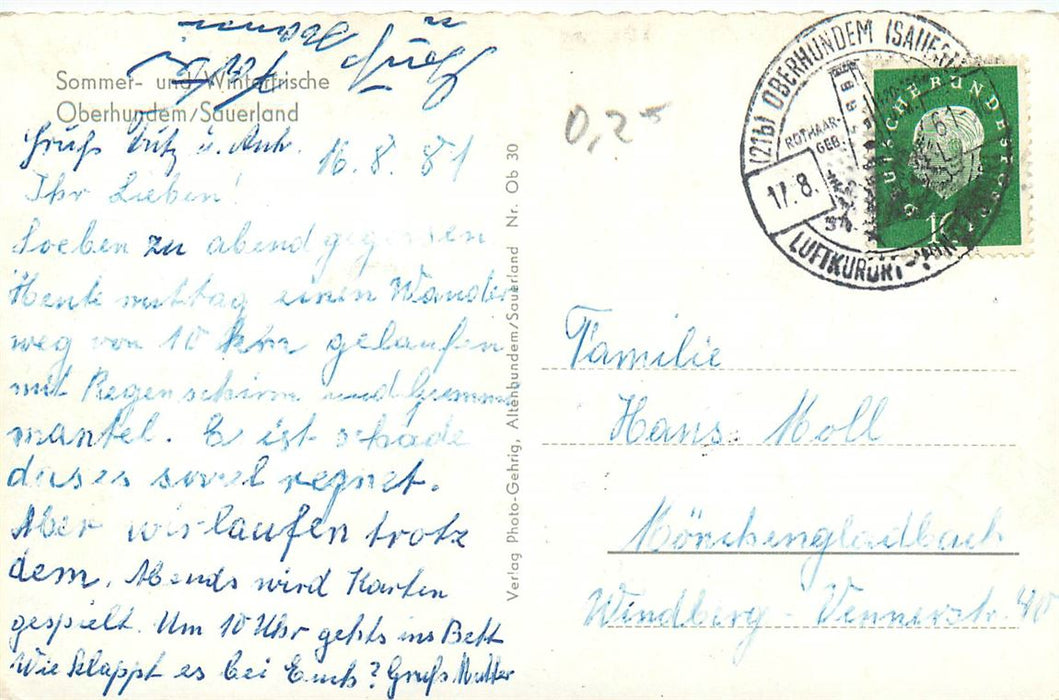 Sommer- und Winterfrische
Oberhundem/Sauerland
Gruß Fritz u. Anh.
16.8.81
Ihr Lieben!
Soeben zu abend gegessen
Heute mittag einen Wander
weg von 10 km gelaufen
mit Regenschirm und Gummi
mantel. Es ist schade
das es soviel regnet.
Aber wir laufen trotz
dem. Abends wird Karten
gespielt. Um 10 Uhr gehts ins Bett
Wie klappt es bei Euch? Gruß Mutter
Verlag Photo-Gehrig, Altenhundem/Sauerland Nr. Ob 30
0,25
(21b) OBERHUNDEM (SAUERL
ROTHAAR-
GEB.
17.8.
LUFTKURORT
Familie
Hans Moll
Mönchengladbach
Windberg - Vennerstr. 40